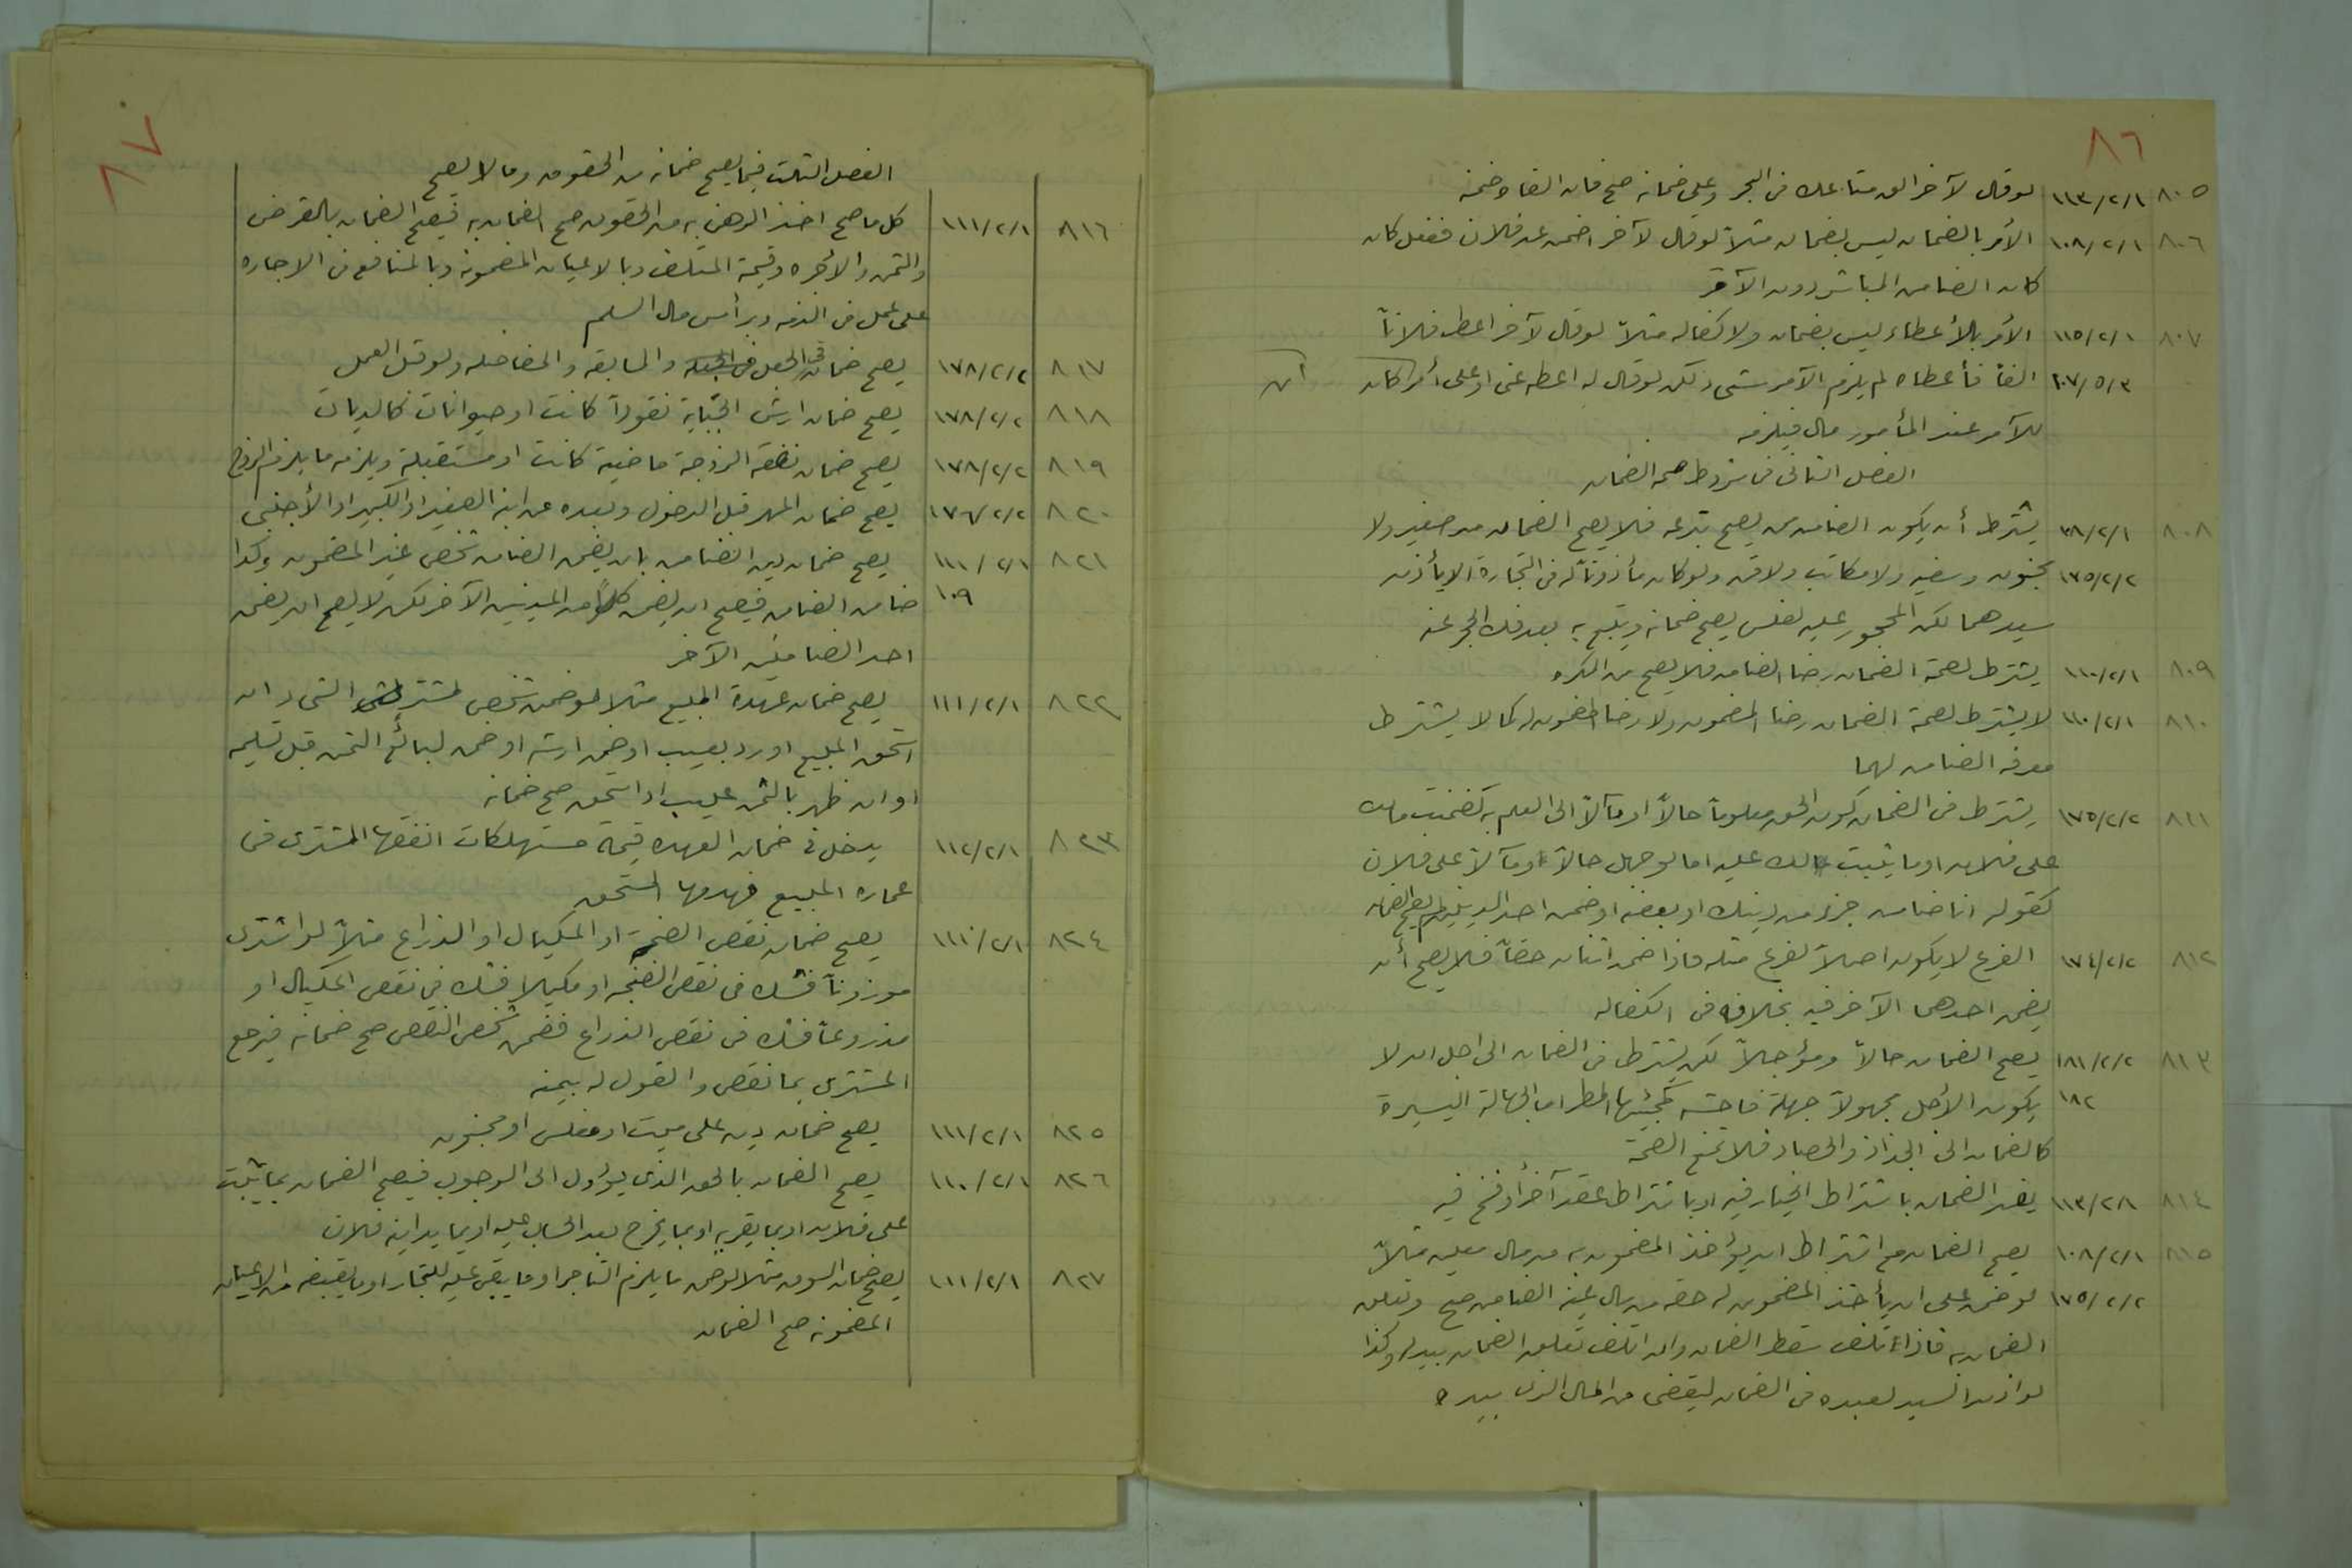 ٨٦
٨٠٥ ١١٣/٢/١ لو قال لآخر الق متاعك في البحر وعلى ضمانه صح فان القاه ضمنه
٨٠٦ ١٠٨/٢/١ الأمر بالضمان ليس بضمان مثلاً لو قال لآخر اضمن عن فلان ففعل كان
كان الضامن المباشر دون الآمر
٨٠٧ ١١٥/٢/١ الأمر بالأعطاء ليس بضمان ولا كفاله مثلاً لو قال لآخر اعط فلاناً
٢٠٧/٥/٣ الفاً فأعطاه لم يلزم الآمر شي لكن لو قال له اعطه عني او علي أمر كان ان
للآمر عند المأمور مال فيلزمه
الفصل الثاني في شروط صحة الضمان
٨٠٨ ٣٨/٢/١ يشترط أن يكون الضامن من يصح تبرعه فلا يصح الضمان من صغير ولا
١٧٥/٢/٢ مجنون وسفيه ولا مكاتب ولا قن ولو كان مأذوناً له في التجارة الا يأذن
سيدهما لكن المحجور عليه لفلس يصح ضمانه ويتبع به بعد فك الحجر عنه
٨٠٩ ١١٠/٢/١ يشترط لصحة الضمان رضا الضامن فلا يصح من المكره
٨١٠ ١١٠/٢/١ لا يشترط لصحة الضمان رضا المضمون ولا رضا المضمون له كما لا يشترط
معرفة الضامن لهما
٨١١ ١٧٥/٢/٢ يشترط في الضمان كون الحق معلوماً حالاً او مآلاً الى العلم به كضمنت مالك
على فلان او ما يثبت لك عليه اما لو جهل حالاً ومآلاً على فلان
كقوله انا ضامن جزء من دينك او بعضه او ضمن احد الدينين لم يصح الضمان
٨١٢ ١٧٤/٢/٢ الفرع لا يكون اصلاً لفرع مثله فاذا ضمن اثنان حقاً فلا يصح أن
يضمن احدهما الآخر فيه بخلافه في الكفاله
٨١٣ ١٨١/٢/٢ يصح الضمان حالاً ومؤجلاً لكن يشترط في الضمان الى اجل ان لا
١٨٢ يكون الأجل مجهولاً جهلة فاحشه كمجيئها المطر اما الجهالة اليسيرة
كالضمان الى الجذاذ والحصاد فلا تمنع الصحة
٨١٤ ١١٣/٢/١ يفسد الضمان باشتراط الخيار فيه او باشتراط عقد آخر أو فسخ فيه
٨١٥ ١٠٨/٢/١ يصح الضمان مع اشتراط ان يؤخذ المضمون به من مال معين مثلاً
١٧٥/٢/٢ لو ضمن على ان يأخذ المضمون له حقه من مال عينه الضامن صح وتعلق
الضمان به فاذا تلف سقط الضمان وان اتلف تعلق الضمان ببدله وكذا
لو اذن السيد لعبده في الضمان ليقضى من المال الذي بيده
٨٧
الفصل الثالث فيما يصح ضمانه من الحقوق وما لا يصح
٨١٦ ١١١/٢/١ كل ما صح اخذ الرهن به من الحقوق صح الضمان به فيصح الضمان بالقرض
والثمن والأجره وقيمة المتلف وبالاعيان المضمونه وبالمنافع في الاجاره
على عمل في الذمه وبرأس مال السلم
٨١٧ ١٧٨/٢/٢ يصح ضمان الجعل في والمسابقه والمفاضله ولو قبل العمل
٨١٨ ١٧٨/٢/٢ يصح ضمان ارش الجناية نقوداً كانت او حيوانات كالديات
٨١٩ ١٧٨/٢/٢ يصح ضمان نفقة الزوجة ماضية كانت او مستقبلة ويلزمه ما يلزم الزوج
٨٢٠ ١٧٦/٢/٢ يصح ضمان المهر قبل الدخول وبعده عن ابنه الصغير او الكبير او الأجنبي
٨٢١ ١١١/٢/١ يصح ضمان دين الضامن بان يضمن الضامن شخص غير المضمون وكذا
١٠٩ ضامن الضامن فيصح ان يضمن كلاً من المدينين الآخر لكن لا يصح ان يضمن
احد الضامنين الآخر
٨٢٢ ١١١/٢/١ يصح ضمان عهدة المبيع مثلا لو ضمن شخص لمشتر الثمن ان
استحق المبيع او رد بعيب او ضمن ارشه او ضمن لبائع الثمن قبل تسليمه
او ان ظهر بالثمن عيب او استحق صح ضمانه
٨٢٣ ١١٢/٢/١ يدخل في ضمان العهده قيمة مستهلكات انفقها المشترى في
عماره المبيع فهدمها المستحق
٨٢٤ ١١١/٢/١ يصح ضمان نقص الصنجة او المكيال او الذراع مثلاً لو اشترى
موزوناً فشك في نقص الصنجه او مكيلا فشك في نقص المكيال او
مذروعاً فشك في نقص الذراع فضمن شخص النقص صح ضمانه فيرجع
المشترى بما نقص والقول له بيمينه
٨٢٥ ١١١/٢/١ يصح ضمان دين على ميت او مفلس او مجنون
٨٢٦ ١١٠/٢/١ يصح الضمان بالحق الذي يؤول الى الوجوب فيصح الضمان بما يثبت
على فلان او بما يقر به او بما يخرج بعد الحساب عليه او بما يداينه فلان
٨٢٧ ١١١/٢/١ يصح ضمان السوق مثلا لو ضمن ما يلزم التاجر او ما يبقى عليه للتجار او ما يقبضه من الاعيان
المضمونه صح الضمان